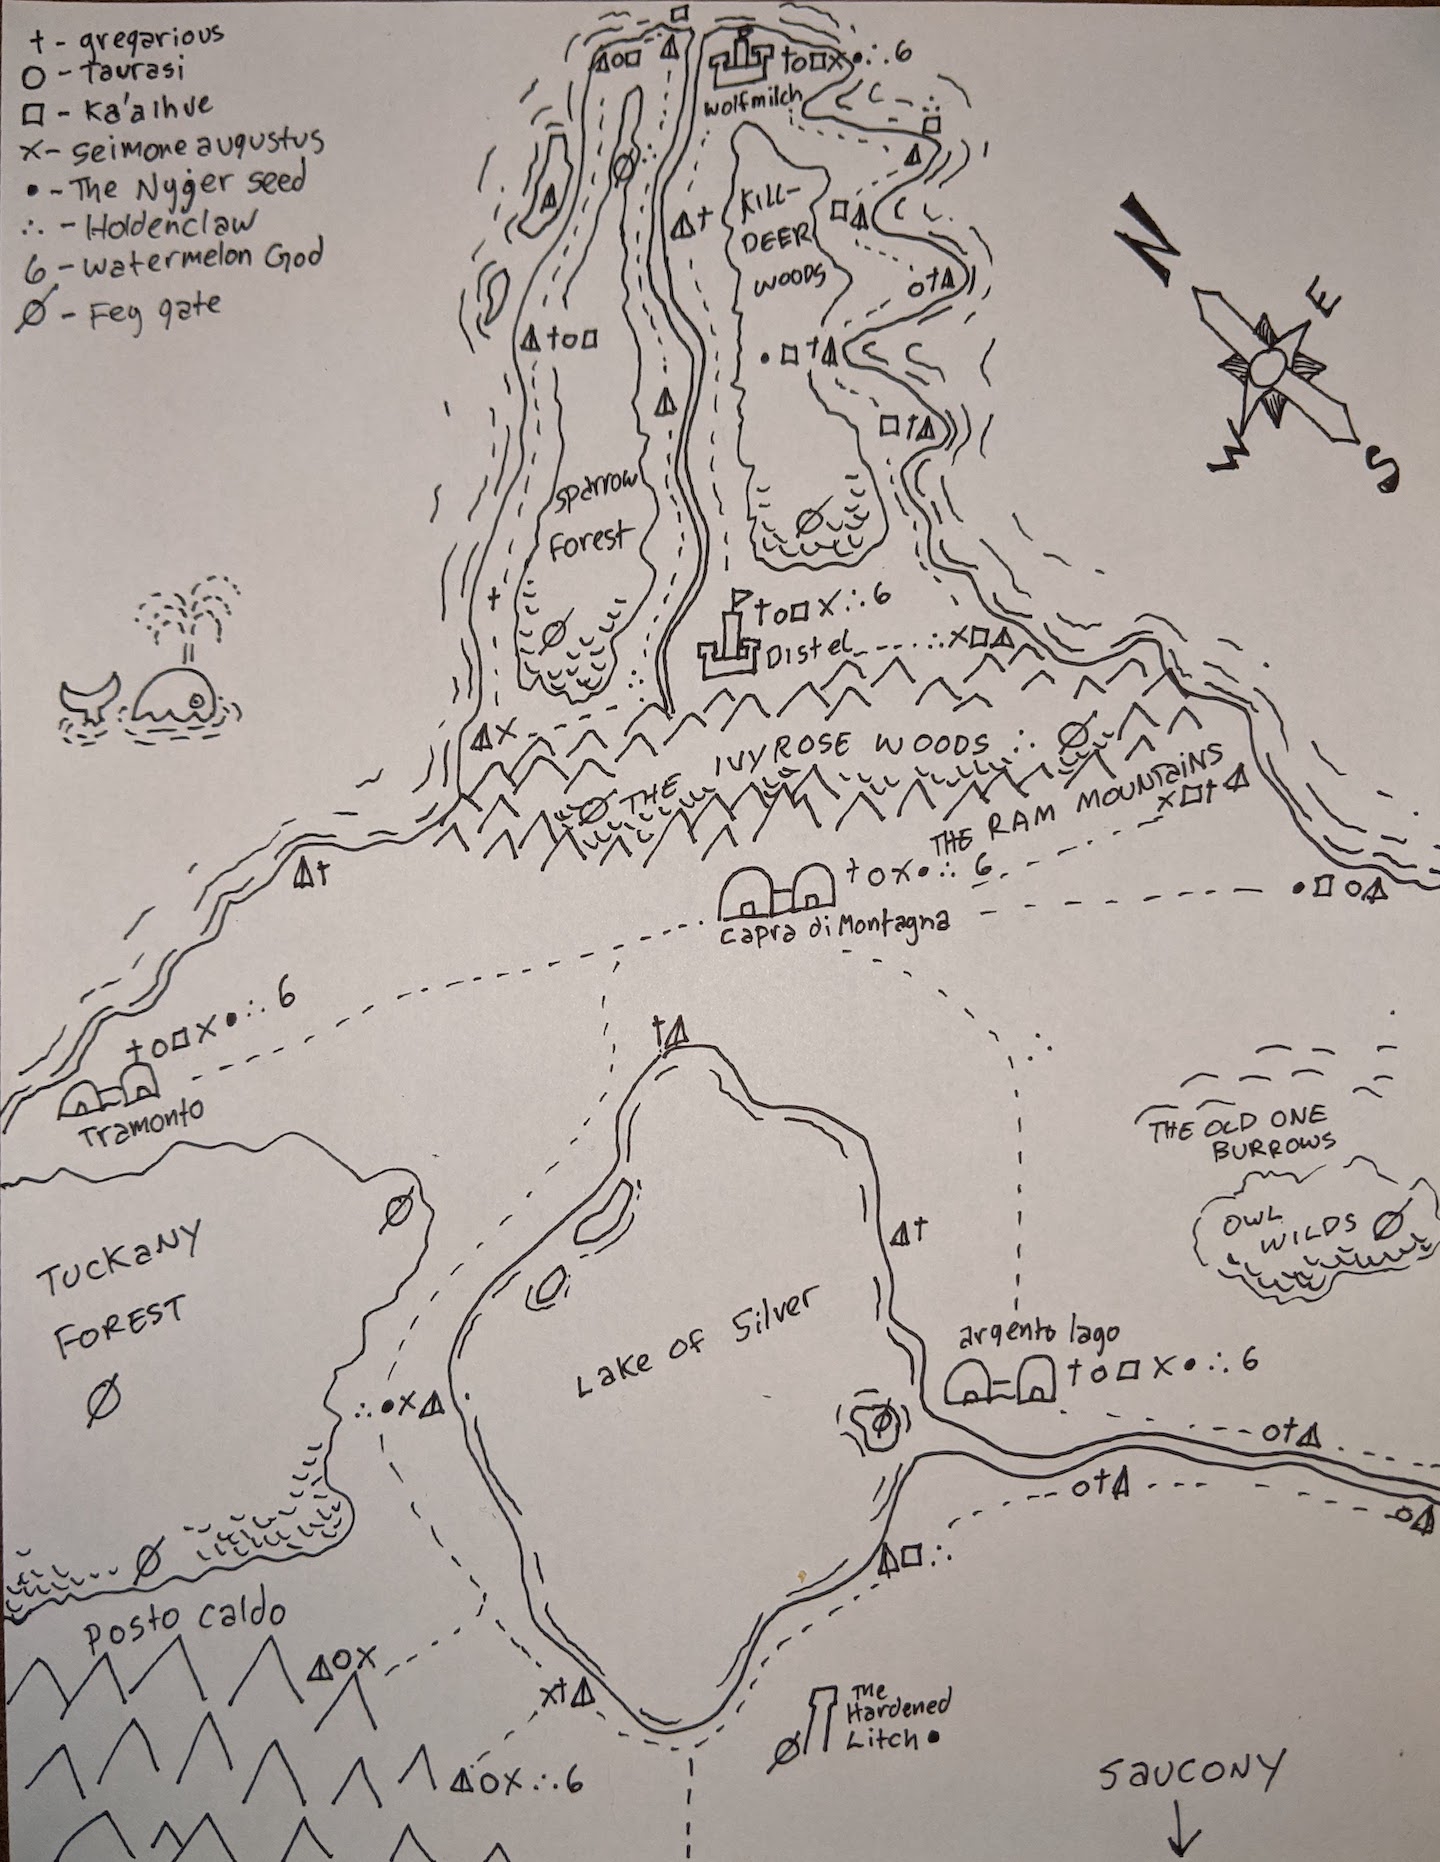 † - gregarious
O - taurasi
□ - Ka'alhue
x - seimone augustus
• - The Nyger seed
∴ - Holdenclaw
6 - watermelon God
Ø - Fey gate
†o□x•∴6
wolfmilch
KILL-
DEER
WOODS
N
E
W
S
Sparrow
Forest
†o□x∴6
Distel
∴x□
THE IVYROSE WOODS ∴
THE RAM MOUNTAINS
x□†
†ox•∴6
Capra di Montagna
•□o
†o□x•∴6
Tramonto
THE OLD ONE
BURROWS
OWL
WILDS
TUCKANY
FOREST
Lake of Silver
argento lago
†o□x•∴6
∴•x
o†
o†
Posto Caldo
ox
x†
ox∴6
The
Hardened
Litch •
SAUCONY